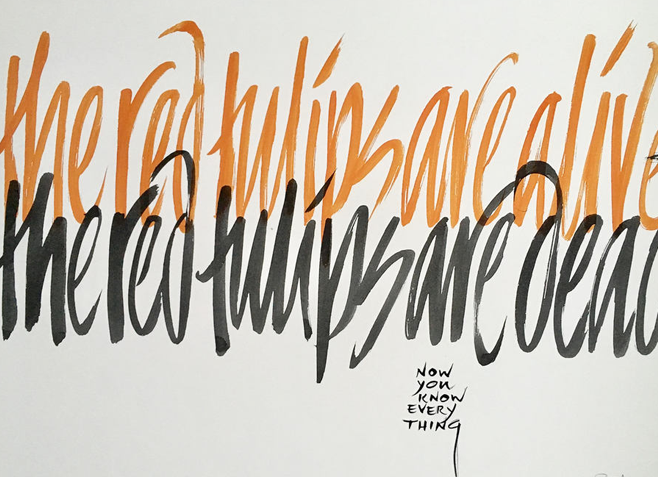 the red tulips are alive
the red tulips are dead
NOW
YOU
KNOW
EVERY
THING